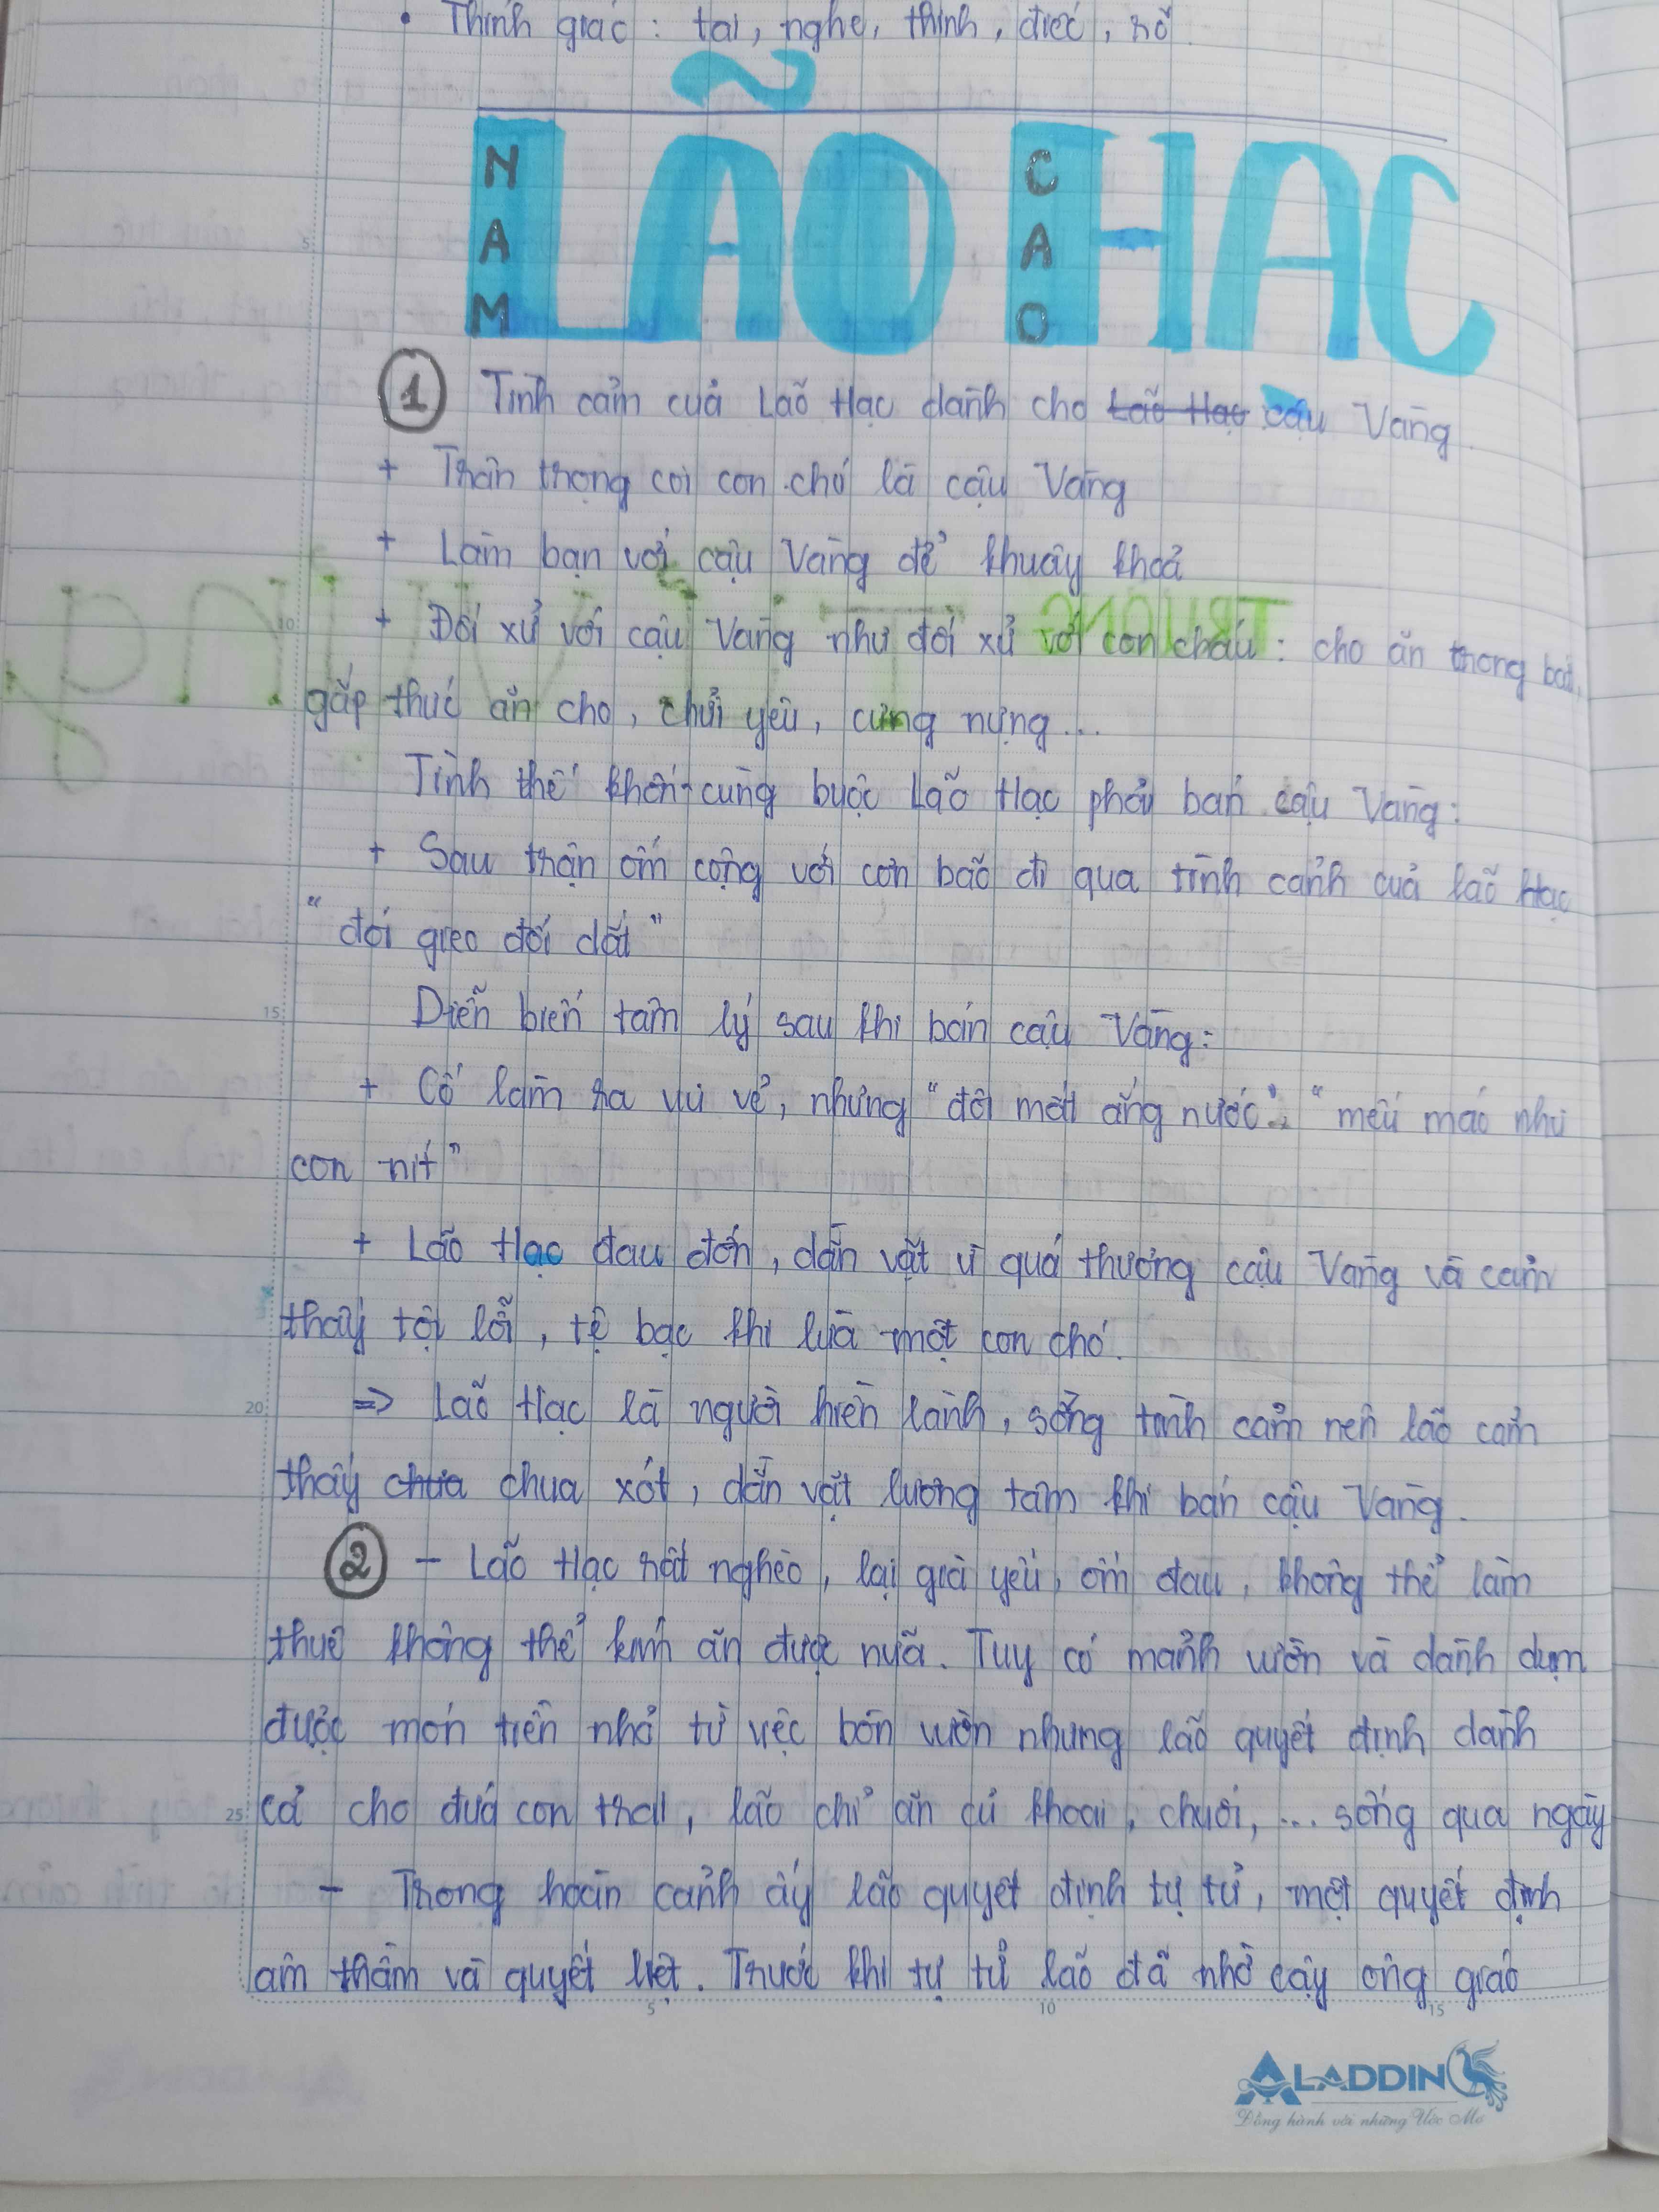 • Thính giác : tai, nghe, thính, điếc, rõ
LÃO HẠC
NAM CAO
1 Tình cảm của Lão Hạc dành cho Lão Hạc cậu Vàng
+ Trân trọng coi con chó là cậu Vàng
+ Làm bạn với cậu Vàng để khuây khoả
+ Đối xử với cậu Vàng như đối xử với con cháu : cho ăn trong bát,
gắp thức ăn cho, chửi yêu, cưng nựng...
Tình thế khốn cùng buộc Lão Hạc phải bán cậu Vàng :
+ Sau trận ốm cộng với cơn bão đi qua tình cảnh của lão Hạc
"đói gieo đói dắt"
Diễn biến tâm lý sau khi bán cậu Vàng :
+ Cố làm ra vui vẻ, nhưng "đôi mắt ầng nước", "mếu máo như
con nít"
+ Lão Hạc đau đớn, dằn vặt vì quá thương cậu Vàng và cảm
thấy tội lỗi, tệ bạc khi lừa một con chó.
=> Lão Hạc là người hiền lành, sống tình cảm nên lão cảm
thấy chua chua xót, dằn vặt lương tâm khi bán cậu Vàng.
2 - Lão Hạc rất nghèo, lại già yếu, ốm đau, không thể làm
thuê không thể kiếm ăn được nữa. Tuy có mảnh vườn và dành dụm
được món tiền nhỏ từ việc bòn vườn nhưng lão quyết định dành
cả cho đứa con trai, lão chỉ ăn củ khoai, chuối, ... sống qua ngày
- Trong hoàn cảnh ấy lão quyết định tự tử, một quyết định
âm thầm và quyết liệt. Trước khi tự tử lão đã nhờ cậy ông giáo
ALADDIN
Đồng hành với những Ước Mơ
5
10
15
20
25
5
10
15